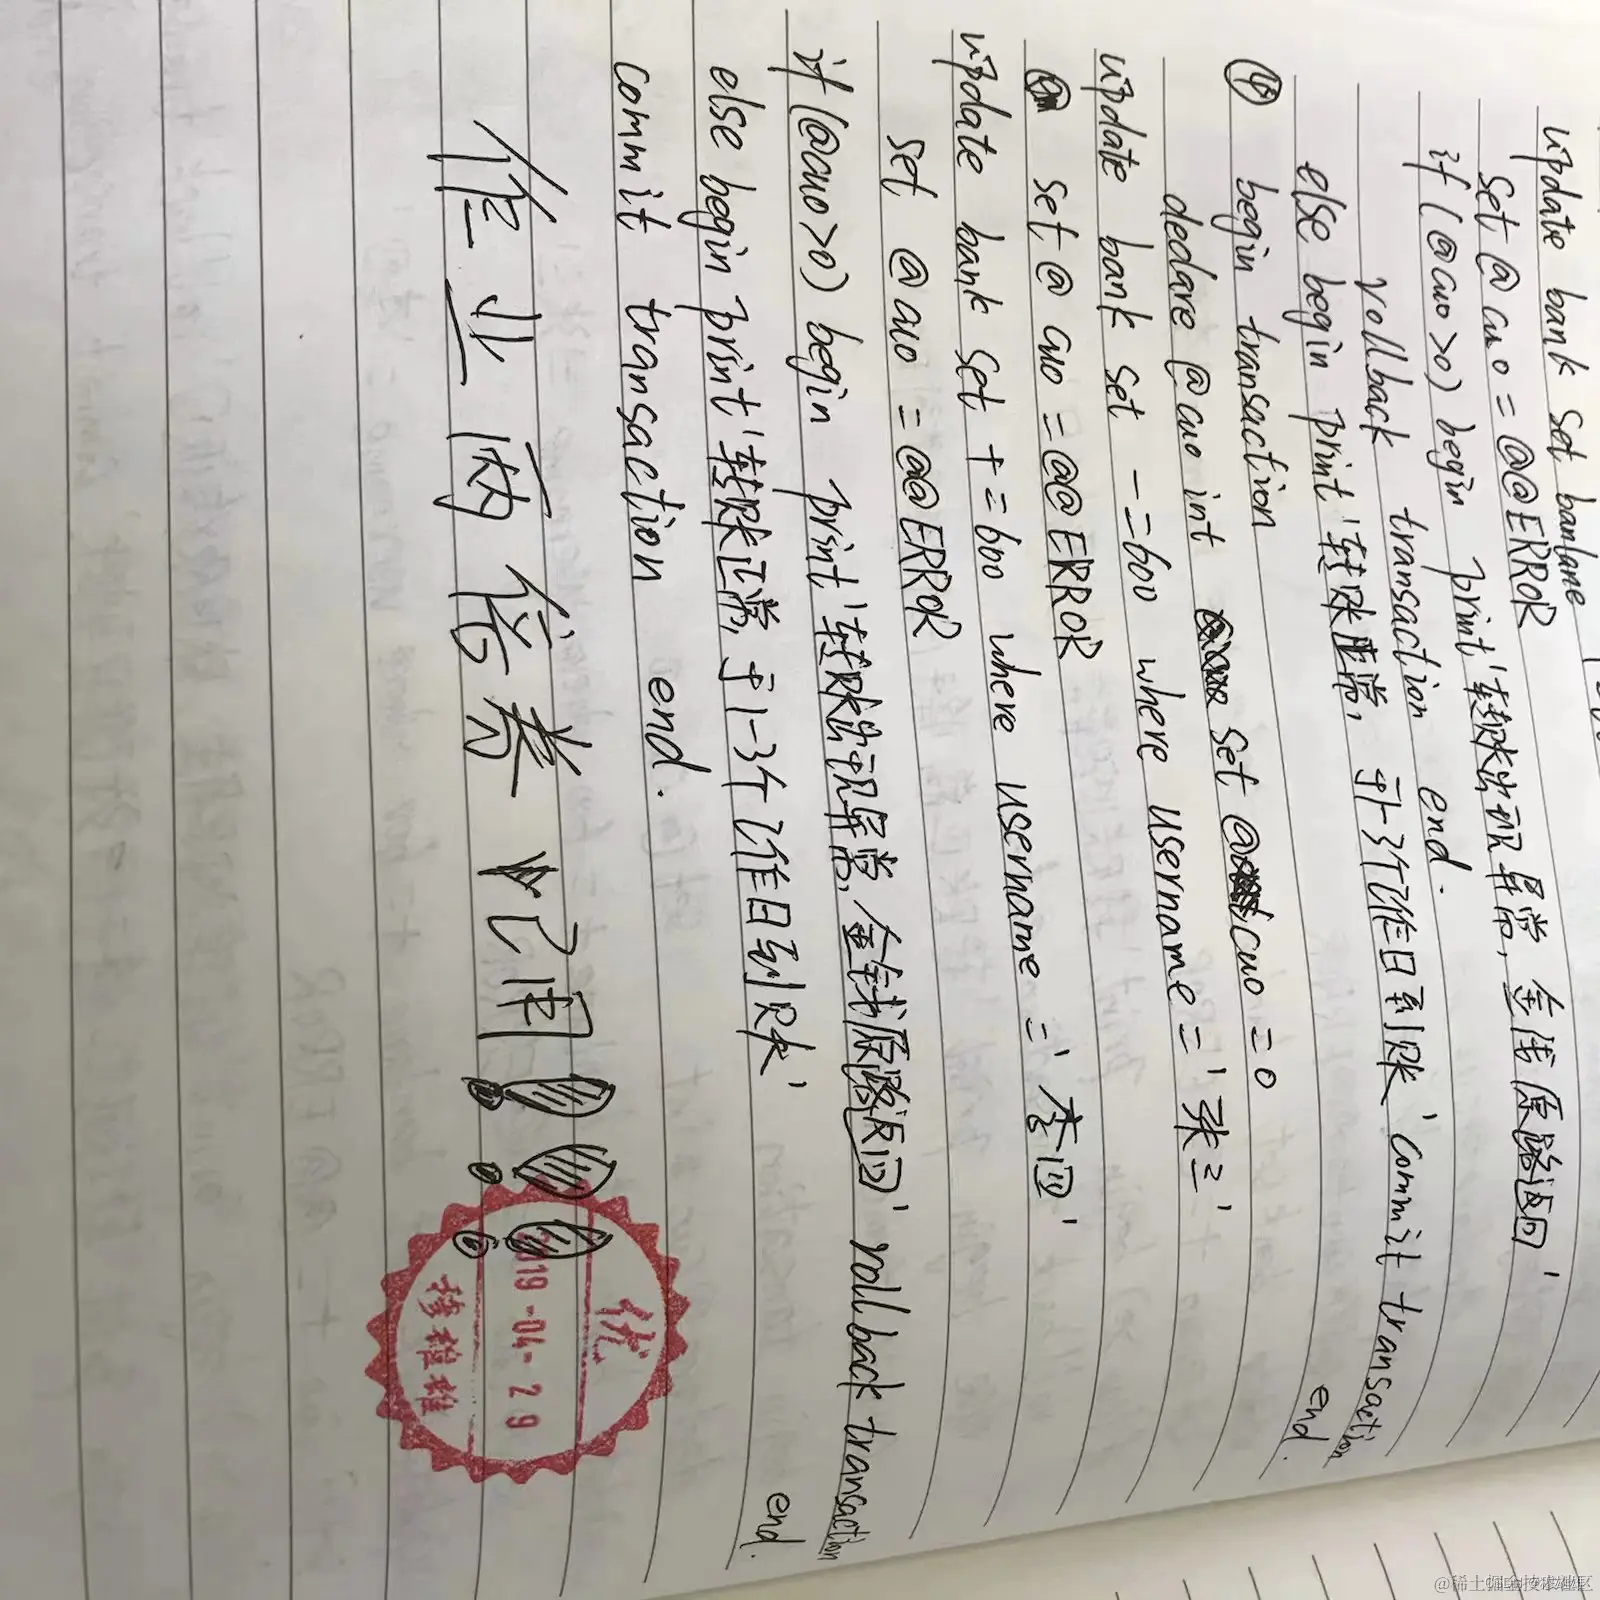 update bank set banlane
set @cuo = @@ERROR
if (@cuo>0) begin print '转账出现异常, 金钱原路返回'
rollback transaction end.
else begin print '转账正常, 于1-3个工作日到账' commit transaction end.
④ begin transaction
declare @cuo int set @cuo = 0
update bank set -=600 where username = '张三'
set @ cuo = @@ERROR
update bank set +=600 where username = '李四'
set @cuo = @@ERROR
if (@cuo>0) begin print '转账出现异常, 金钱原路返回' rollback transaction end.
else begin print '转账正常, 于1-3个工作日到账'
commit transaction end.
作业两倍
优
2019-04-29
@稀土掘金技术社区